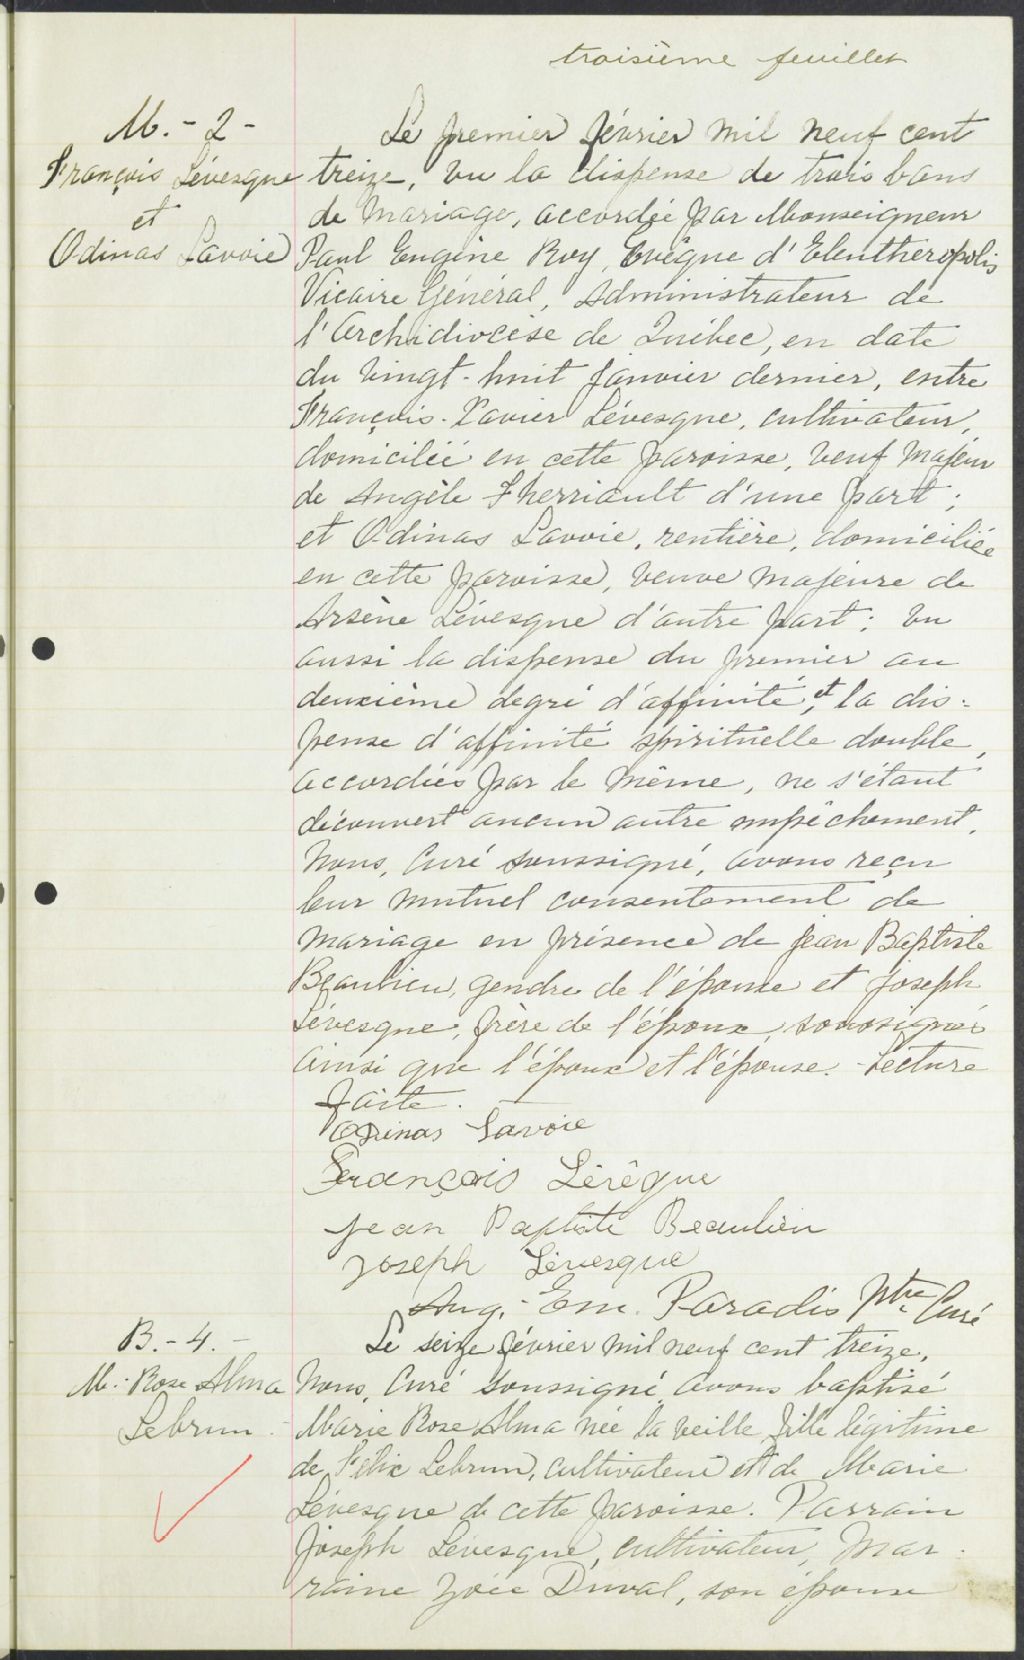 troisième feuillet
M. - 2 -
François Lévesque
et
Odinas Lavoie
Le premier février mil neuf cent
treize, vu la dispense de trois bans
de mariage, accordée par Monseigneur
Paul Eugène Roy, Evêque d'Eleutheropolis
Vicaire Général, Administrateur de
l'Archidiocèse de Québec, en date
du vingt-huit janvier dernier, entre
François-Xavier Lévesque, cultivateur,
domicilié en cette paroisse, veuf majeur
de Angèle Therriault d'une part;
et Odinas Lavoie, rentière, domiciliée
en cette paroisse, veuve majeure de
Arsène Lévesque d'autre part; vu
aussi la dispense du premier au
deuxième degré d'affinité, et la dis-
pense d'affinité spirituelle double,
accordées par le même, ne s'étant
découvert aucun autre empêchement,
Nous, Curé soussigné, avons reçu
leur mutuel consentement de
mariage en présence de Jean Baptiste
Beaulieu, gendre de l'épouse et Joseph
Lévesque, frère de l'époux, soussignés
ainsi que l'époux et l'épouse. - Lecture
faite.
Odinas Lavoie
François Lévêque
Jean Baptiste Beaulieu
Joseph Lévesque
Aug.- Em. Paradis Ptre Curé
B. - 4. -
M.- Rose Alma
Lebrun -
Le seize février mil neuf cent treize,
Nous, Curé soussigné avons baptisé
Marie Rose Alma née la veille fille légitime
de Félix Lebrun, cultivateur et de Marie
Lévesque de cette paroisse. Parrain
Joseph Lévesque, cultivateur, Mar-
raine Zoée Duval, son épouse